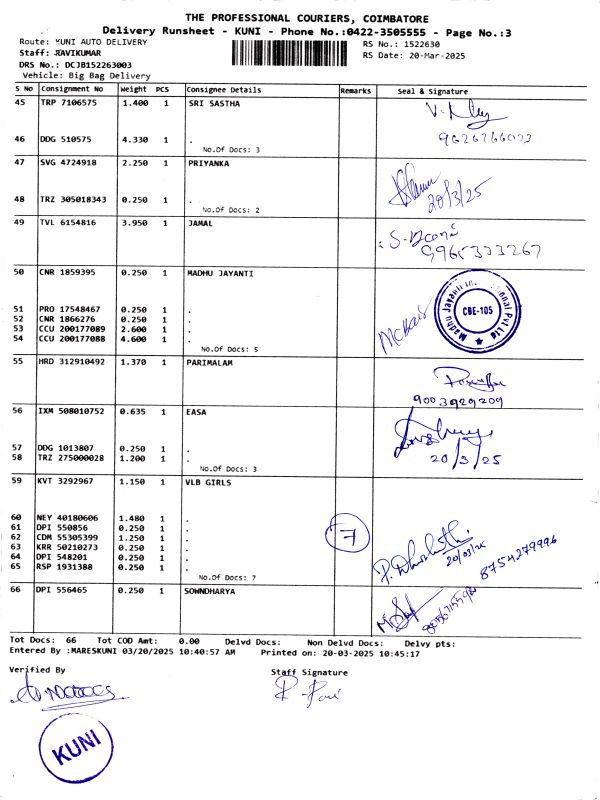 THE PROFESSIONAL COURIERS, COIMBATORE
Delivery Runsheet - KUNI - Phone No.:0422-3505555 - Page No.:3
Route: KUNI AUTO DELIVERY
RS No.: 1522630
Staff: RAVIKUMAR
RS Date: 20-Mar-2025
DRS No.: DCJB152263003
Vehicle: Big Bag Delivery
S No Consignment No Weight PCS Consignee Details Remarks Seal & Signature
45 TRP 7106575 1.400 1 SRI SASTHA
46 DDG 510575 4.330 1 .
No.Of Docs: 3
47 SVG 4724918 2.250 1 PRIYANKA
20/3/25
48 TRZ 305018343 0.250 1 .
No.Of Docs: 2
49 TVL 6154816 3.950 1 JAMAL
50 CNR 1859395 0.250 1 MADHU JAYANTI
51 PRO 17548467 0.250 1 .
CBE-105
52 CNR 1866276 0.250 1 .
53 CCU 200177089 2.600 1 .
54 CCU 200177088 4.600 1 .
No.Of Docs: 5
55 HRD 312910492 1.370 1 PARIMALAM
9003929209
56 IXM 508010752 0.635 1 EASA
57 DDG 1013807 0.250 1 .
58 TRZ 275000028 1.200 1 .
20/3/25
No.Of Docs: 3
59 KVT 3292967 1.150 1 VLB GIRLS
60 NEY 40180606 1.480 1 .
61 DPI 550856 0.250 1 .
7
62 CDM 55305399 1.250 1 .
63 KRR 50210273 0.250 1 .
64 DPI 548201 0.250 1 .
20/03/25
8754279996
65 RSP 1931388 0.250 1 .
No.Of Docs: 7
66 DPI 556465 0.250 1 SOWNDHARYA
Tot Docs: 66 Tot COD Amt: 0.00 Delvd Docs: Non Delvd Docs: Delvy pts:
Entered By :MARESKUNI 03/20/2025 10:40:57 AM Printed on: 20-03-2025 10:45:17
Verified By
Staff Signature
KUNI